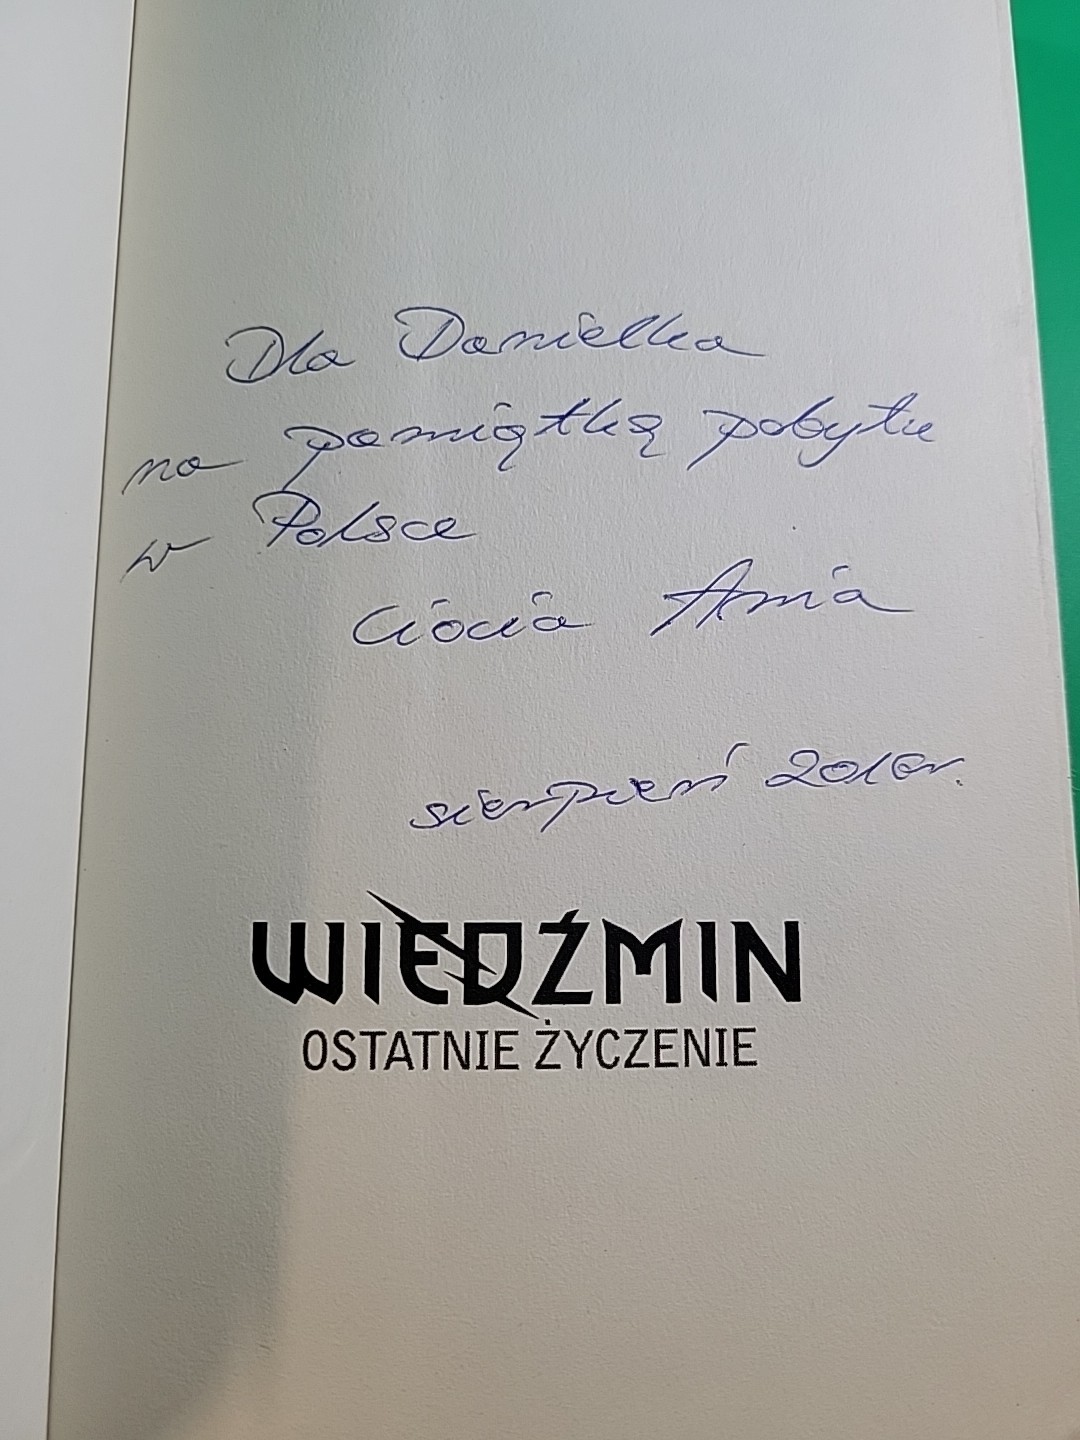 Dla Danielka
na pamiątkę pobytu
w Polsce
Ciocia Ania
sierpień 2016r.
WIEDŹMIN
OSTATNIE ŻYCZENIE